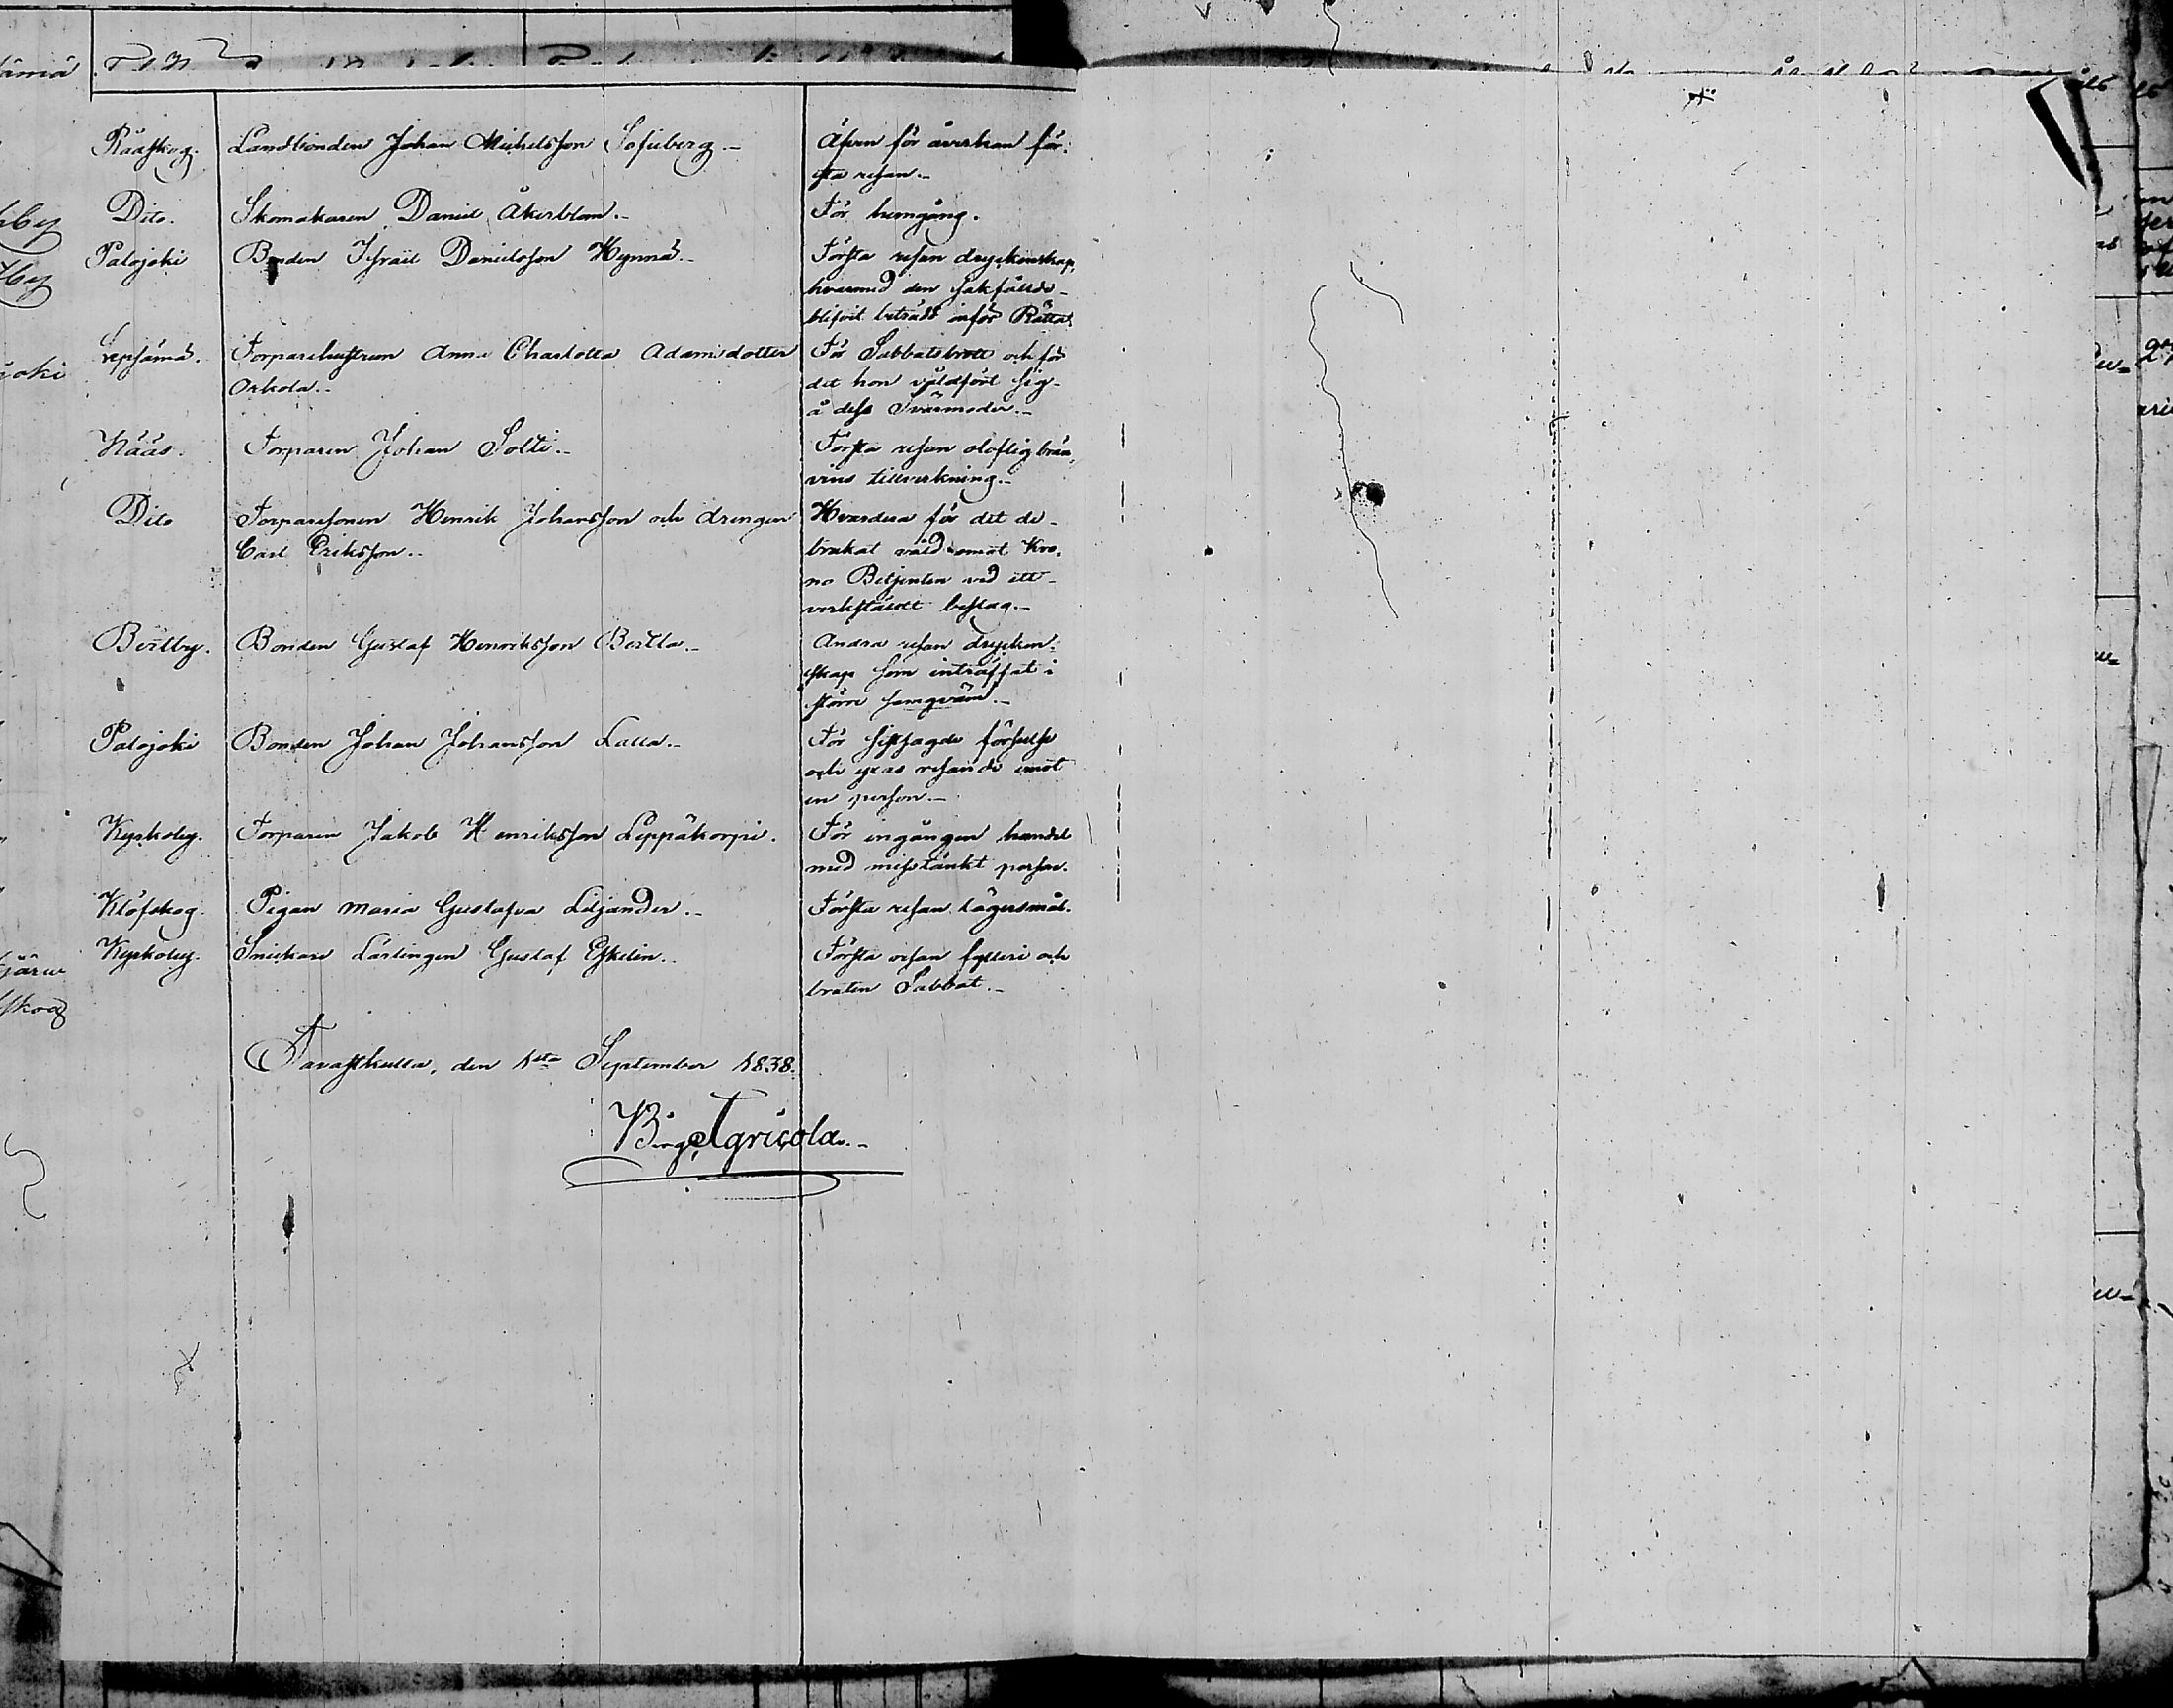 Rååskog. Landbonden Johan Michelsson Sofieberg.- Äfven för åverkan för:
sta resan.-
Dito. Skomakaren Daniel Åkerblom.- För hemgång.
Palojoki Bonden Israel Danielsson Hynnä.- Första resan dryckenskap,
hvarmed den sakfällde-
blifvit beträdd inför Rätta.
Lepsämä. Torparehustrun Anna Charlotta Adamsdotter För Sabbatsbrott och för
Orkola.- det hon våldfört sig-
å dess Svärmoder.-
Nääs. Torparen Johan Solti.- Första resan oloflig brän,
vins tillverkning.-
Dito Torparesonen Henrik Johansson och drengen Hvardera för det de-
Carl Eriksson.- brukat våld emot Kro,
no Betjenten vid ett-
verkställdt beslag.-
Bertby. Bonden Gustaf Henriksson Bertla.- Andra resan drycken:
skap som inträffat i
större samqväm.-
Palojoki Bonden Johan Johansson Lalla.- För sistsagde förseelse
och
en person.-
Kyrkoby. Torparen Jakob Henriksson Leppäkorpi. För ingången handel
med misstänkt person.
Klöfskog. Pigan Maria Gustafva Liljander.- Första resan lägersmål.
Kyrkoby. Snickare Lärlingen Gustaf Eskelin.- Första resan fylleri och
bruten Sabbat.-
Tavastkulla, den 1sta September 1838.
Birg. Agricola.-